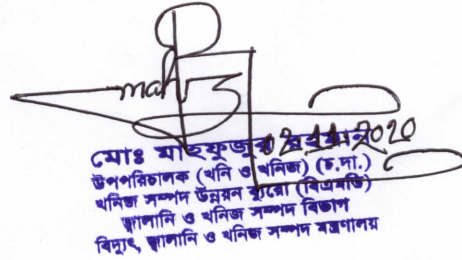 02.11.2020
মোঃ মাহফুজুর রহমান
উপপরিচালক (খনি ও খনিজ) (চ.দা.)
খনিজ সম্পদ উন্নয়ন ব্যুরো (বিএমডি)
জ্বালানি ও খনিজ সম্পদ বিভাগ
বিদ্যুৎ, জ্বালানি ও খনিজ সম্পদ মন্ত্রণালয়